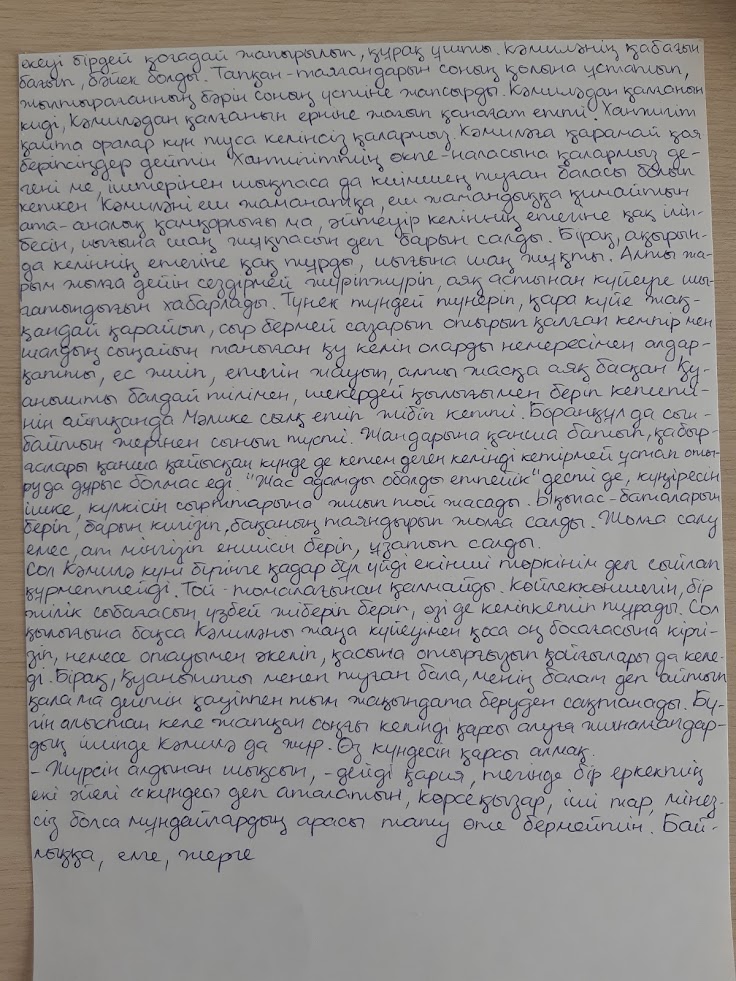 екеуі бірдей қоғадай жапырылып, құрақ ұшты. Кәмиләнің қабағын
бағып, бәйек болды. Тапқан-таянғандарын соның қолына ұстатып,
жылтырағанның бәрін соның үстіне жапсырды. Кәмиләдан қалғанын
киді, Кәмиләдан қалғанын ерніне жағып қанағат етті. Хантжігіт
қайта оралар күн туса келінсіз қалармыз, Кәмиләға қарамай қоя
беріпсіңдер дейтін Хантжігіттің өкпе-наласына қалармыз де-
гені ме, іштерінен шықпаса да киімшең туған баласы болып
кеткен Кәмиләні еш жаманатқа, еш жамандыққа қимайтын
ата-аналық қамқорлығы ма, әйтеуір келіннің етегіне қақ ілін-
бесін, иығына шаң жұқпасын деп барын салды. Бірақ, ақырын-
да келіннің етегіне қақ тұрды, иығына шаң жұқты. Алты жа-
рым жылға дейін сездірмей жүріп-жүріп, аяқ астынан күйеуге шы-
ғатындығын хабарлады. Түнек түндей түнеріп, қара күйе жақ-
қандай қарайып, сыр бермей сазарып отырып қалған кемпір мен
шалдың сыңайын таныған қу келін оларды немересімен алдар-
қатты, ес жиып, етегін жауып, алты жасқа аяқ басқан Қу-
анышты балдай тілімен, шекердей қылығымен беріп кететі-
нін айтқанда Мәлике сылқ етіп жібіп кетті. Боранқұл да сын-
байтын жерінен сынып түсті. Жандарына қанша батып, қабыр-
ғалары қанша қайысқан күнде де кетем деген келінді кетірмей ұстап оты-
руда дұрыс болмас еді. "Жас адамды обалды етпейік" десті де, күңіресін
ішке, күлкісін сырттарына жиып той жасады. Ықылас-баталарын
беріп, барын кигізіп, бақанын таяндырып жолға салды. Жолға салу
емес, ат мінгізіп еншісін беріп, ұзатып салды.
Сол Кәмилә күні бүгінге қадар бұл үйді екінші төркінім деп сыйлап
құрметтейді. Той-томалағынан қалмайды. Көйлеккөншегін, бір
жілік сыбағасын үзбей жіберіп беріп, өзі де келіпкетіп тұрады. Сол
қылығына бақса Кәмиләны жаңа күйеуімен қоса оң босағасына кіргі-
зіп, немесе отауымен әкеліп, қасына отырғызып қойғылары да келе-
ді. Бірақ, Қуанышты менен туған бала, менің балам деп айтып
қала ма дейтін қауіппен тым жақындата беруден сақтанады. Бү-
гін алыстан келе жатқан соңғы келінді қарсы алуға жиналғандар-
дың ішінде Кәмилә да жүр. Өз күндесін қарсы алмақ.
- Жүрсін алдынан шықсын, - дейді қария, тегінде бір еркектің
екі әйелі «күндес» деп аталатын, көрсеқызар, іші тар, мінез-
сіз болса мұндайлардың арасы тату өте бермейтін. Бай-
лыққа, елге, жерге